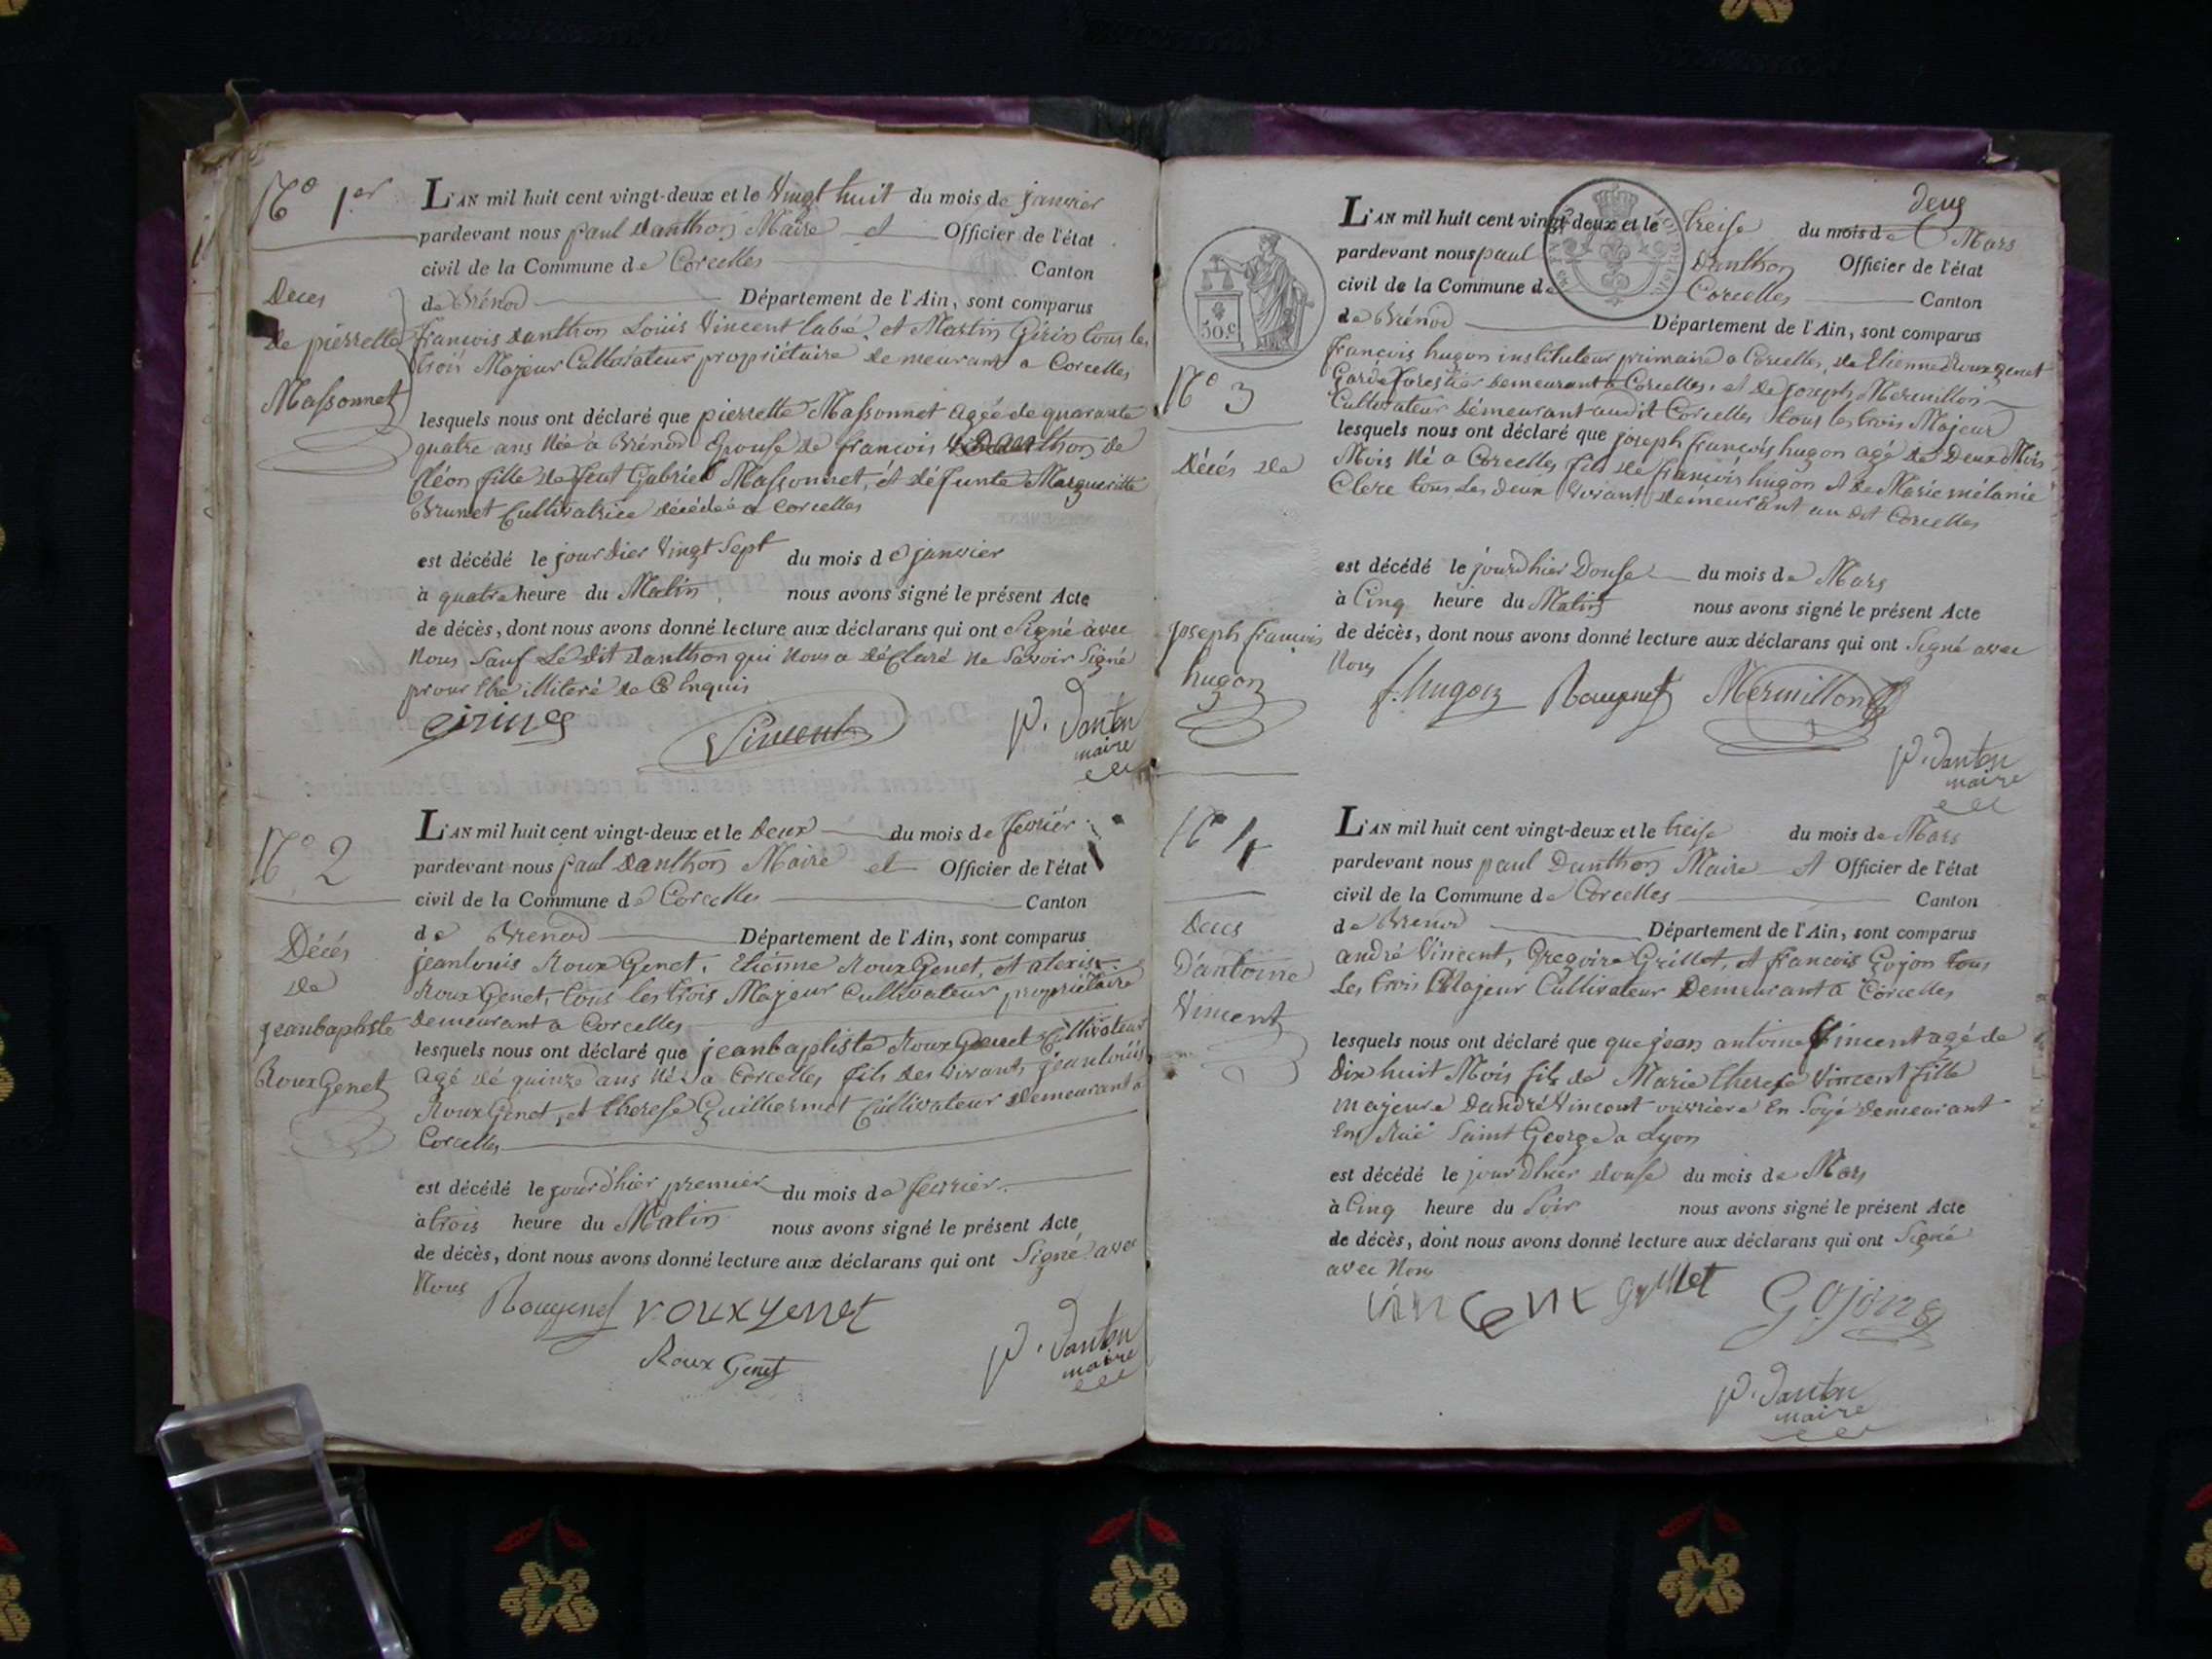 N° 1.er
Deces
de pierrette
Massonnet
L'AN mil huit cent vingt-deux et le Vingt huit du mois de janvier
pardevant nous paul Danthon Maire et Officier de l'état
civil de la Commune de Corcelles Canton
de Brénod Département de l'Ain, sont comparus
francois Danthon Louis Vincent labé, et Martin Girin tous les
trois Majeur Cultivateur propriétaire demeurant a Corcelles
lesquels nous ont déclaré que pierrette Massonnet agée de quarante
quatre ans Née a Brénod Epouse de francois Danthon de
fléon fille de feut Gabriel Massonnet, et défunte Margueritte
Brunet Cultivatrice décédée a Corcelles
est décédé le jour dier Vingt Sept du mois de janvier
à quatre heure du Matin, nous avons signé le présent Acte
de décès, dont nous avons donné lecture aux déclarans qui ont Signé avec
Nous Sauf Le dit Danthon qui Nous a déClaré Ne Savoir Signé
pour Etre illiteré de Enquis
Girin
Vincent
P. Danton
maire
N° 2
Décés
de
jeanbaptiste
RouxGenet
L'AN mil huit cent vingt-deux et le Deux du mois de fevrier
pardevant nous paul Danthon Maire et Officier de l'état
civil de la Commune de Corcelles Canton
de Brenod Département de l'Ain, sont comparus
jeanlouis RouxGenet, Etiénne RouxGenet, et alexis
RouxGenet, tous les trois Majeur Cultivateur propriétaire
demeurant a Corcelles
lesquels nous ont déclaré que jeanbaptiste RouxGenet Cultivateur
agé de quinze ans Né a Corcelles fils des Vivants jeanlouis
RouxGenet, et therese Guillermet Cultivateur demeurant a
Corcelles
est décédé le jour d'hier premier du mois de fevrier
à trois heure du Matin nous avons signé le présent Acte
de décès, dont nous avons donné lecture aux déclarans qui ont Signé avec
Nous
Rougenet rouxgenet
Roux Genet
P. Danton
maire
50.c
N° 3
Décés de
Joseph francois
hugon
deux
L'AN mil huit cent vingt-deux et le treise du mois de Mars
pardevant nous paul Danthon Officier de l'état
civil de la Commune de Corcelles Canton
de Brénod Département de l'Ain, sont comparus
françois hugon instituteur primaire a Corcelles, de Etienne Rouxgenet
Garde forestier demeurant a Corcelles, et de Joseph Mermillon
Cultivateur demeurant audit Corcelles tous les trois Majeur
lesquels nous ont déclaré que joseph françois hugon agé de Deux Mois
Mois Né a Corcelles fils de françois hugon et de Marie mélanie
Clerc tous Les deux Vivant demeurant au dit Corcelles
est décédé le jourd'hier Douse du mois de Mars
à Cinq heure du Matin nous avons signé le présent Acte
de décès, dont nous avons donné lecture aux déclarans qui ont Signé avec
Nous
f. hugon Rougenet Mermillon
P. Danton
maire
N° 4
Deces
D'antoine
Vincent
L'AN mil huit cent vingt-deux et le treise du mois de Mars
pardevant nous paul Danthon Maire et Officier de l'état
civil de la Commune de Corcelles Canton
de Brenod Département de l'Ain, sont comparus
andré Vincent, Gregoire Grillet, et francois Gojon tous
Les trois Majeur Cultivateur Demeurant a Corcelles
lesquels nous ont déclaré que que jean antoine Vincent agé de
Dix huit Mois fils de Marie therese Vincent fille
majeure D'andré Vincent ouvriere En Soye demeurant
En Rue Saint George a Lyon
est décédé le jour d'hier douse du mois de Mars
à Cinq heure du Soir nous avons signé le présent Acte
de décès, dont nous avons donné lecture aux déclarans qui ont Signé
avec Nous
vincent grillet Gojon
P. Danton
maire